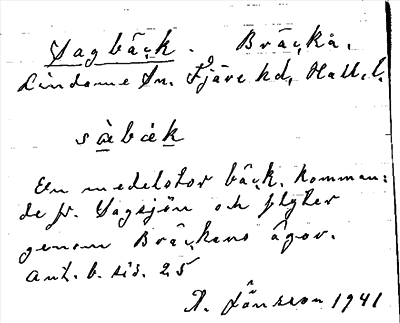 Sagbäck. Bräcka.
Lindome Sn. Fjäre hd, Hall. l.
såbäk
En medelstor bäck, komman=
de fr. Sagsjön och flyter
genom Bräckans ägor.
Ant. b. sid. 25
A. Jönsson 1941